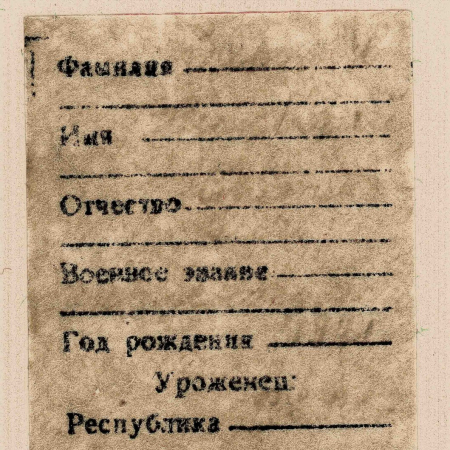 Фамилия
Имя
Отчество
Военное звание
Год рождения
Уроженец:
Республика